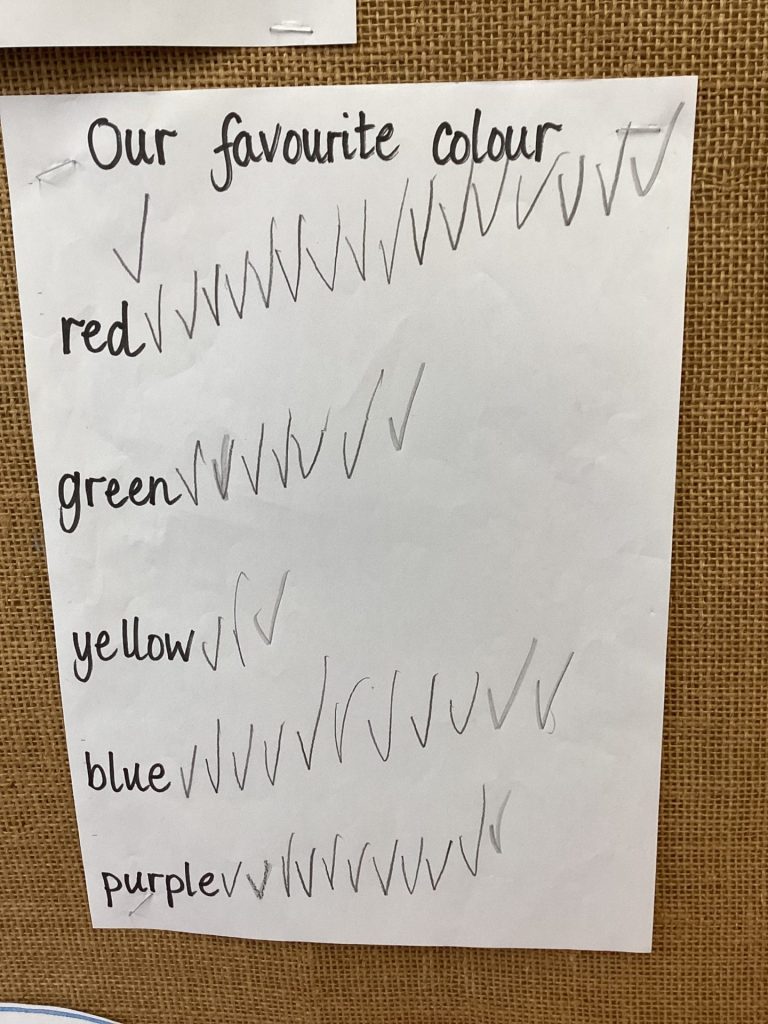 Our favourite colour
red
green
yellow
blue
purple